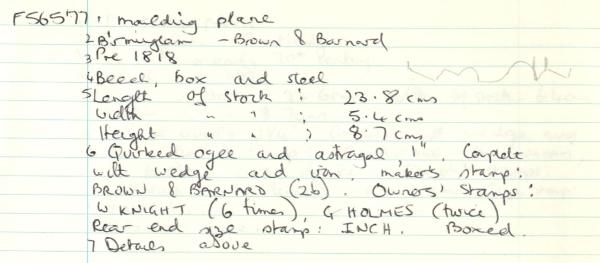 FS6577 1 moulding plane
2 B'irmingham - Brown & Barnard
3 Pre 1818
4 Beech, box and steel
5 Length of stock : 23.8 cms
Width " " : 5.4 cms
Height " " : 8.7 cms
6 Quirked ogee and astragal, 1". Complete
with wedge and iron. makers stamp:
BROWN & BARNARD (2b). Owners' Stamps:
W KNIGHT (6 times), G HOLMES (twice)
Rear end size stamp: INCH. Boxed.
7 Details above